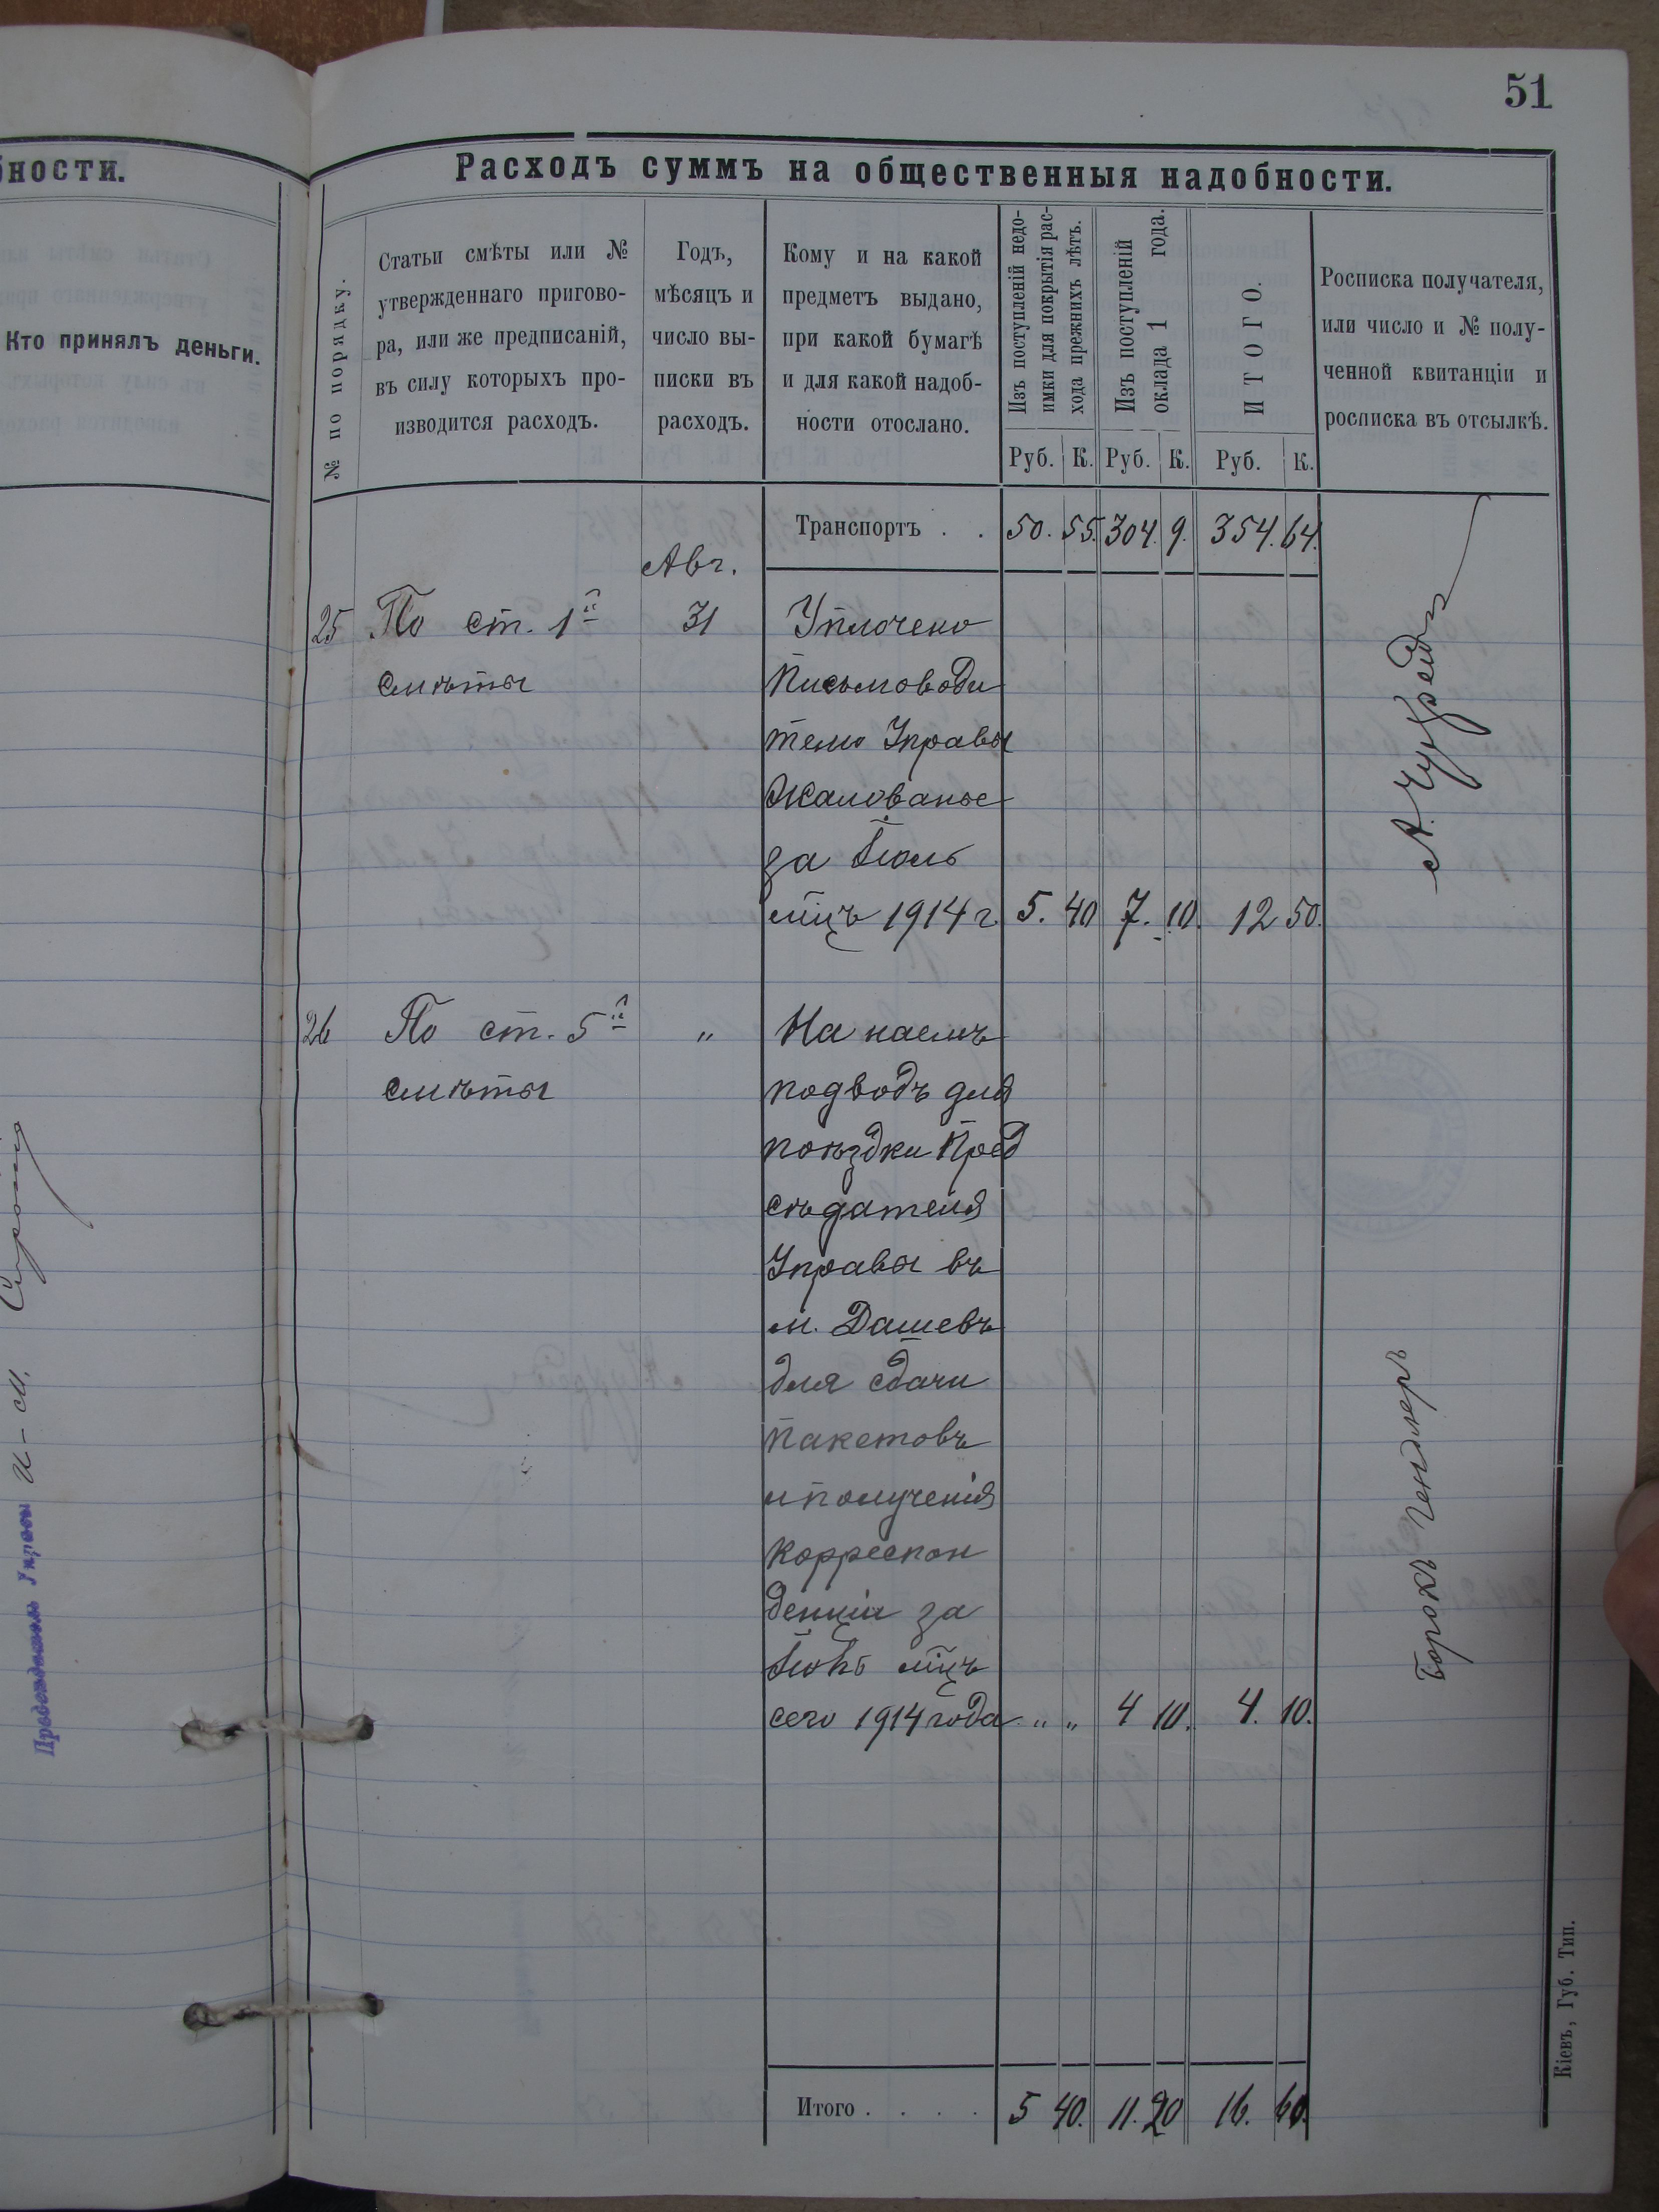 51
бности.
Кто принялъ деньги.
Предсѣдатель Управы
Расходъ суммъ на общественныя надобности.
№ по порядку.
Статьи смѣты или №
утвержденнаго пригово-
ра, или же предписаній,
въ силу которыхъ про-
изводится расходъ.
Годъ,
мѣсяцъ и
число вы-
писки въ
расходъ.
Кому и на какой
предметъ выдано,
при какой бумагѣ
и для какой надоб-
ности отослано.
Изъ поступленій недо-
имки для покрытія рас-
хода прежнихъ лѣтъ.
Изъ поступленій
оклада 1 года.
ИТОГО.
Росписка получателя,
или число и № полу-
ченной квитанціи и
росписка въ отсылкѣ.
Руб. К. Руб. К. Руб. К.
Транспортъ . . 50. 55. 304. 9. 354. 64.
Авг.
25 По ст. 1й 31 Уплочено
смѣты Письмоводи
телю Управы
Жалованье
за Іюль
мцъ 1914 г. 5. 40 7. 10. 12 50.
26 По ст. 5й " На наемъ
смѣты подводъ для
поѣздки Пред
сѣдателя
Управы въ
м. Дашевъ
для сдачи
пакетовъ
и полученія
корреспон
денціи за
мцъ
сего 1914 года " " 4 10. 4. 10.
Итого . . . . 5 40. 11. 20 16. 60.
Кіевъ, Губ. Тип.